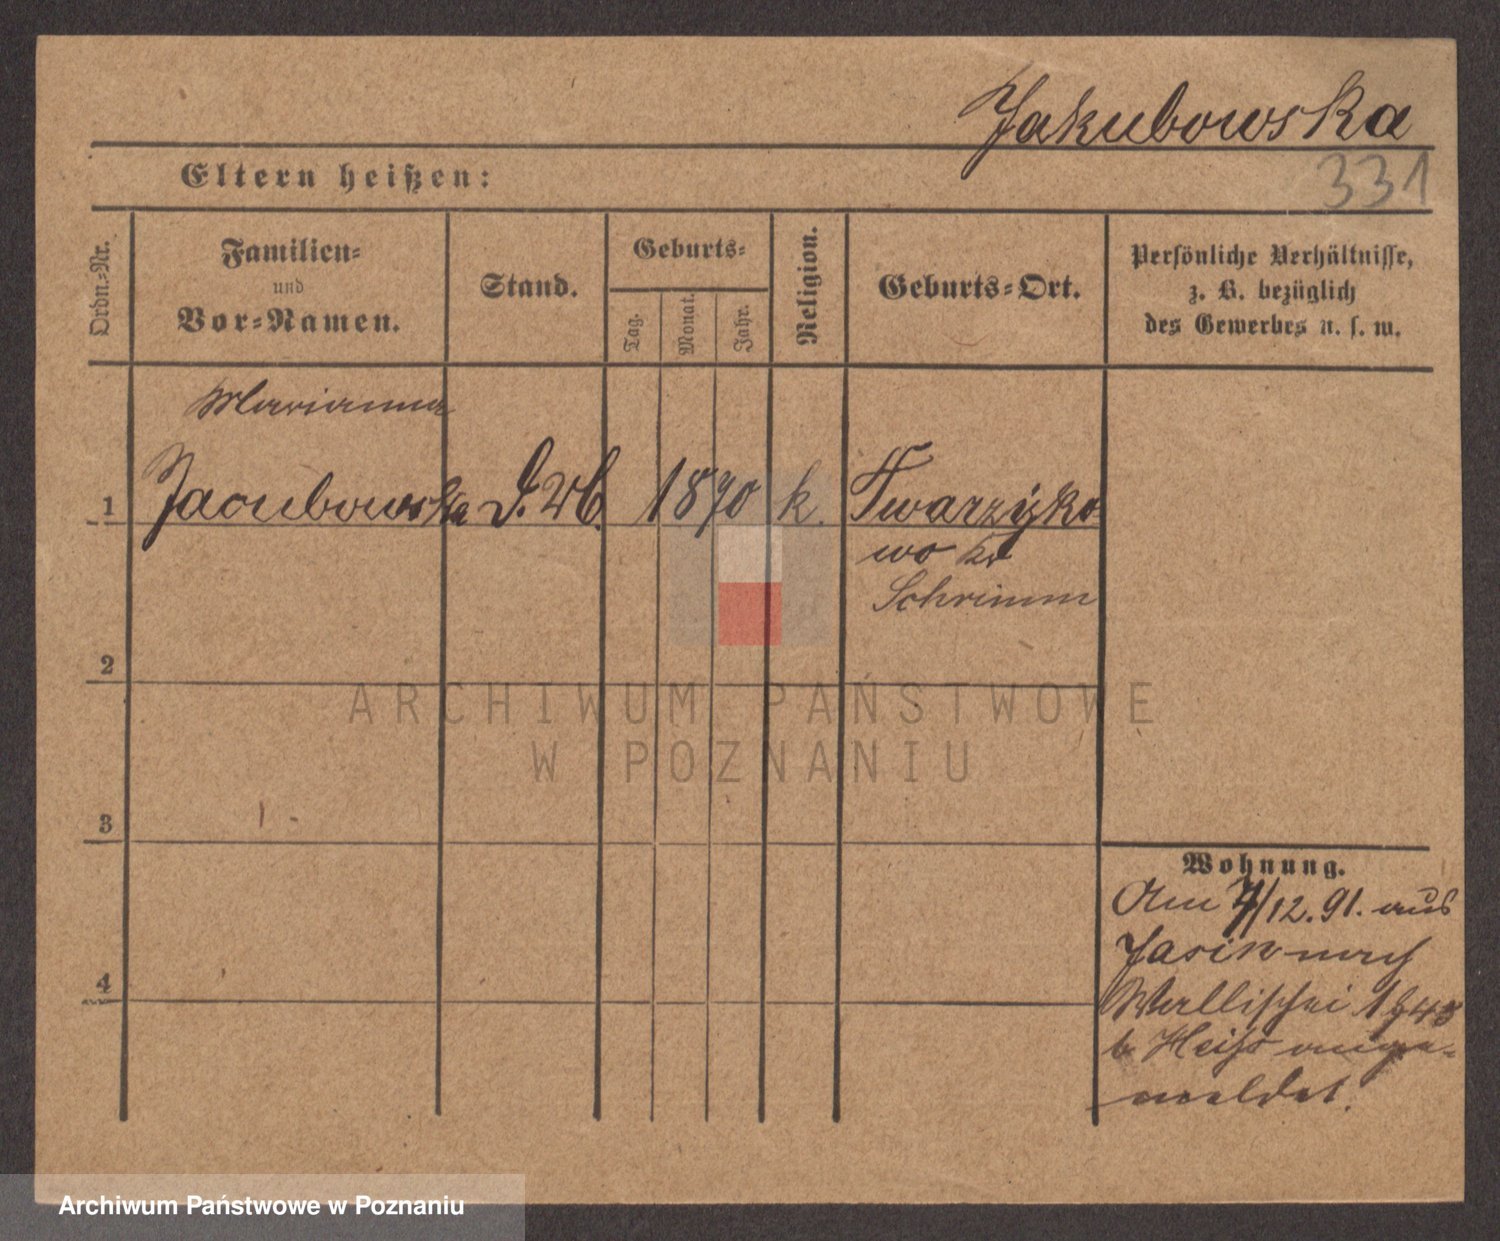 Jakubowska
331
Eltern heißen:
Ordn.=Nr.
Familien=
und
Vor=Namen.
Stand.
Geburts=
Tag.
Monat.
Jahr.
Religion.
Geburts=Ort.
Persönliche Verhältnisse,
z. B. bezüglich
des Gewerbes u. s. w.
Marianna
1 Jacubowska D. 1870 k. Twarzyko
wo Kr
Schrimm
2
ARCHIWUM PAŃSTWOWE
W POZNANIU
3
Wohnung.
Am 7/12.91. aus
Jasin nach
Wallischei
b Heiß ange=
4
meldet.
Archiwum Państwowe w Poznaniu